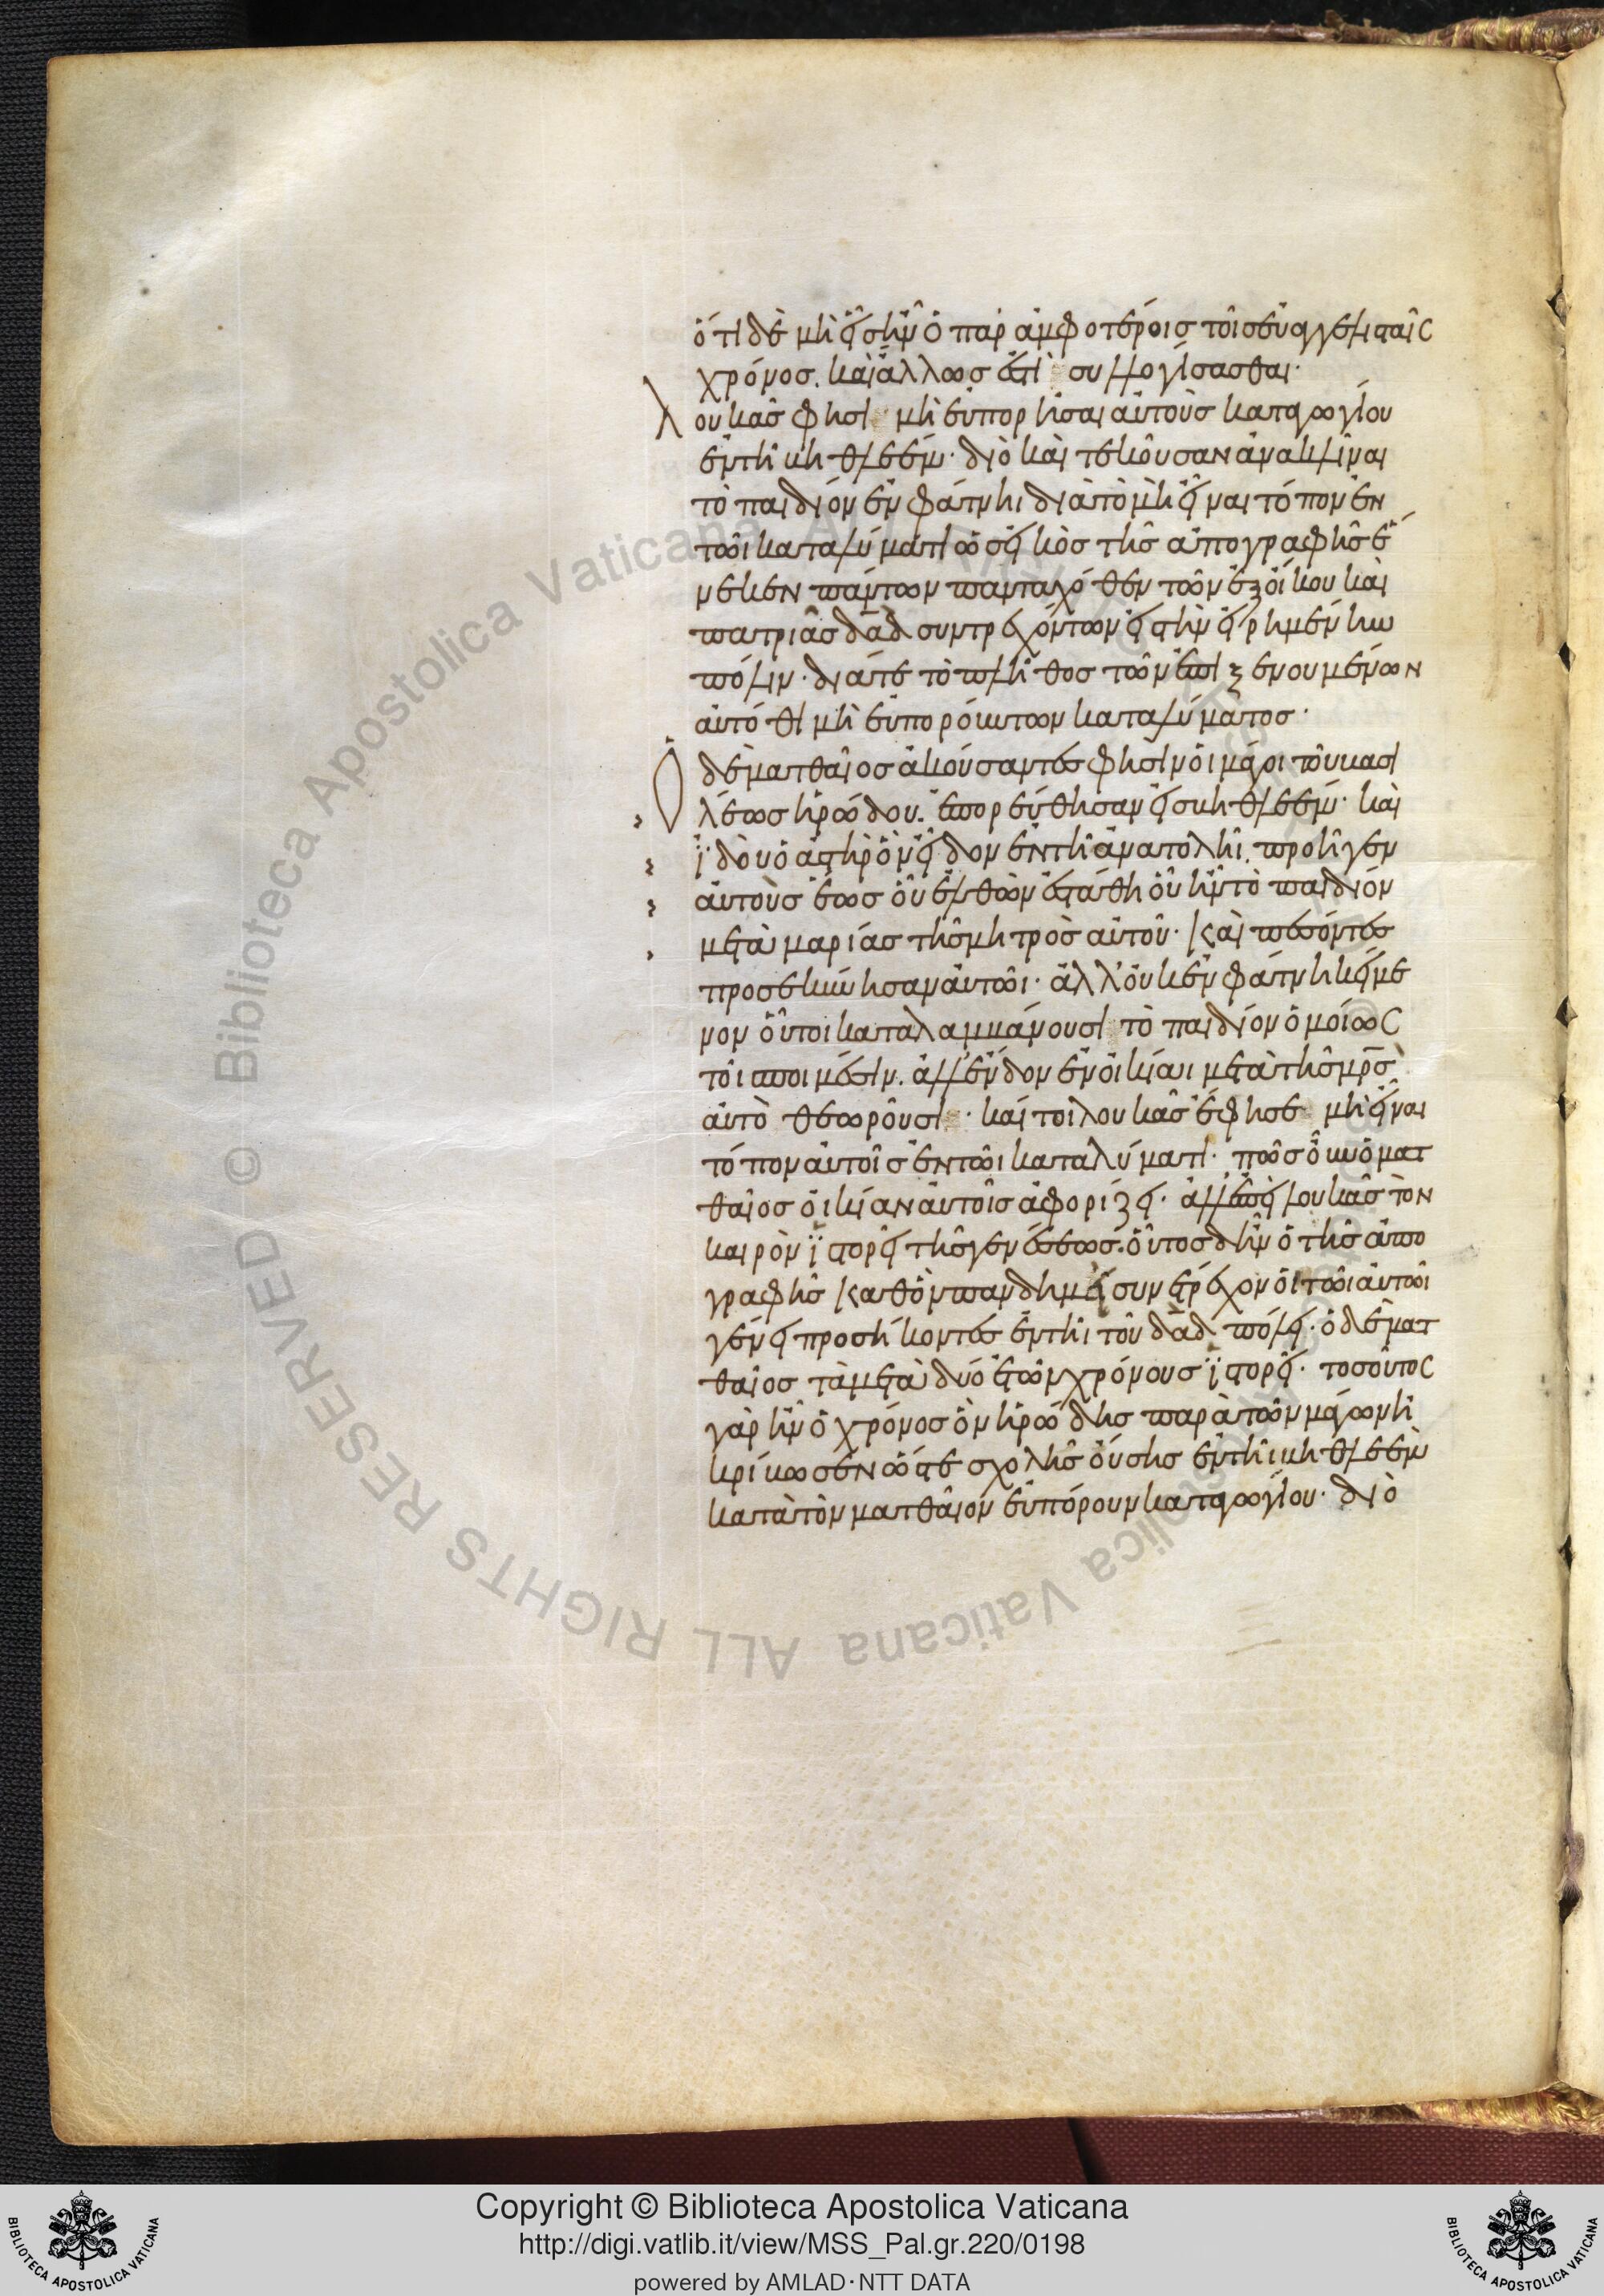 ὅτι δὲ μὴ εἷς ἦν ὁ παρ ἀμφοτέροις τοῖς εὐαγγελισταῖς
χρόνος. καὶ ἄλλως ἔστι συλλογίσασθαι·
Λουκᾶς φησὶ μὴ εὐπορῆσαι αὐτοὺς καταγωγίου
ἐν τῆι βηθλεέμ· διὸ καὶ τεκοῦσαν ἀνακλῖναι
τὸ παιδίον ἐν φάτνηι διὰ τὸ μὴ εἶναι τόπον ἐν
τῶι καταλύματι ὡς εἰκὸς τῆς ἀπογραφῆς ἕ
νεκεν πάντων πανταχόθεν τῶν ἐξ οἴκου καὶ
πατριᾶς δαδ συντρεχόντων εἰς τὴν εἰρημένην
πόλιν· διά τε τὸ πλῆθος τῶν ἐπιξενουμένων
αὐτόθι μὴ εὐπορούντων καταλύματος·
Ὁ δὲ ματθαῖος ἀκούσαντες φησὶν οἱ μάγοι τοῦ βασι
λέως ἡρώδου. ἐπορεύθησαν εἰς βηθλεέμ· καὶ
ϊδοὺ ὁ ἀστὴρ ὃν εἶδον ἐν τῆι ἀνατολῆι. προῆγεν
αὐτοὺς ἕως οὗ ἐλθὼν ἐστάθη οὗ ἦν τὸ παιδίον
μετὰ μαρίας τῆς μητρὸς αὐτοῦ· καὶ πεσόντες
προσεκύνησαν αὐτῶι· ἀλλ' οὐκ ἐν φάτνηι κείμε
νον οὗτοι καταλαμβάνουσι τὸ παιδίον ὁμοίως
τοῖ ποιμέσιν. ἀλλ' ἔνδον ἐν οἰκίαι μετὰ τῆς μρς
αὐτὸ θεωροῦσι· καίτοι λουκᾶς ἔφησε μὴ εἶναι
τόπον αὐτοῖς ἐν τῶι καταλύματι· πῶς οὖν ὁ ματ
θαῖος οἰκίαν αὐτοῖς ἀφορίζει· ἀλλ' ἐπεὶ λουκᾶς τὸν
καιρὸν ϊστορεῖ τῆς γενέσεως. οὗτος δ' ἦν ὁ τῆς ἀπο
γραφῆς καθ' ὃν πανδημεὶ συνέτρεχον οἱ τῶι αὐτῶι
γένει προσήκοντες ἐν τῆι τοῦ δαδ πόλει· ὁ δὲ ματ
θαῖος τὰ μετὰ δύο ἐτῶν χρόνους ϊστορεῖ· τοσοῦτος
γὰρ ἦν ὁ χρόνος ὃν ἡρώδης παρὰ τῶν μάγων ἠ
κρίβωσεν ὥστε σχολῆς οὔσης ἐν τῆι βηθλεὲμ
κατὰ τὸν ματθαῖον εὐπόρουν καταγωγίου· διὸ
Copyright © Biblioteca Apostolica Vaticana
http://digi.vatlib.it/view/MSS_Pal.gr.220/0198
powered by AMLAD·NTT DATA
BIBLIOTECA APOSTOLICA VATICANA
BIBLIOTECA APOSTOLICA VATICANA
© Biblioteca Apostolica Vaticana ALL RIGHTS RESERVED